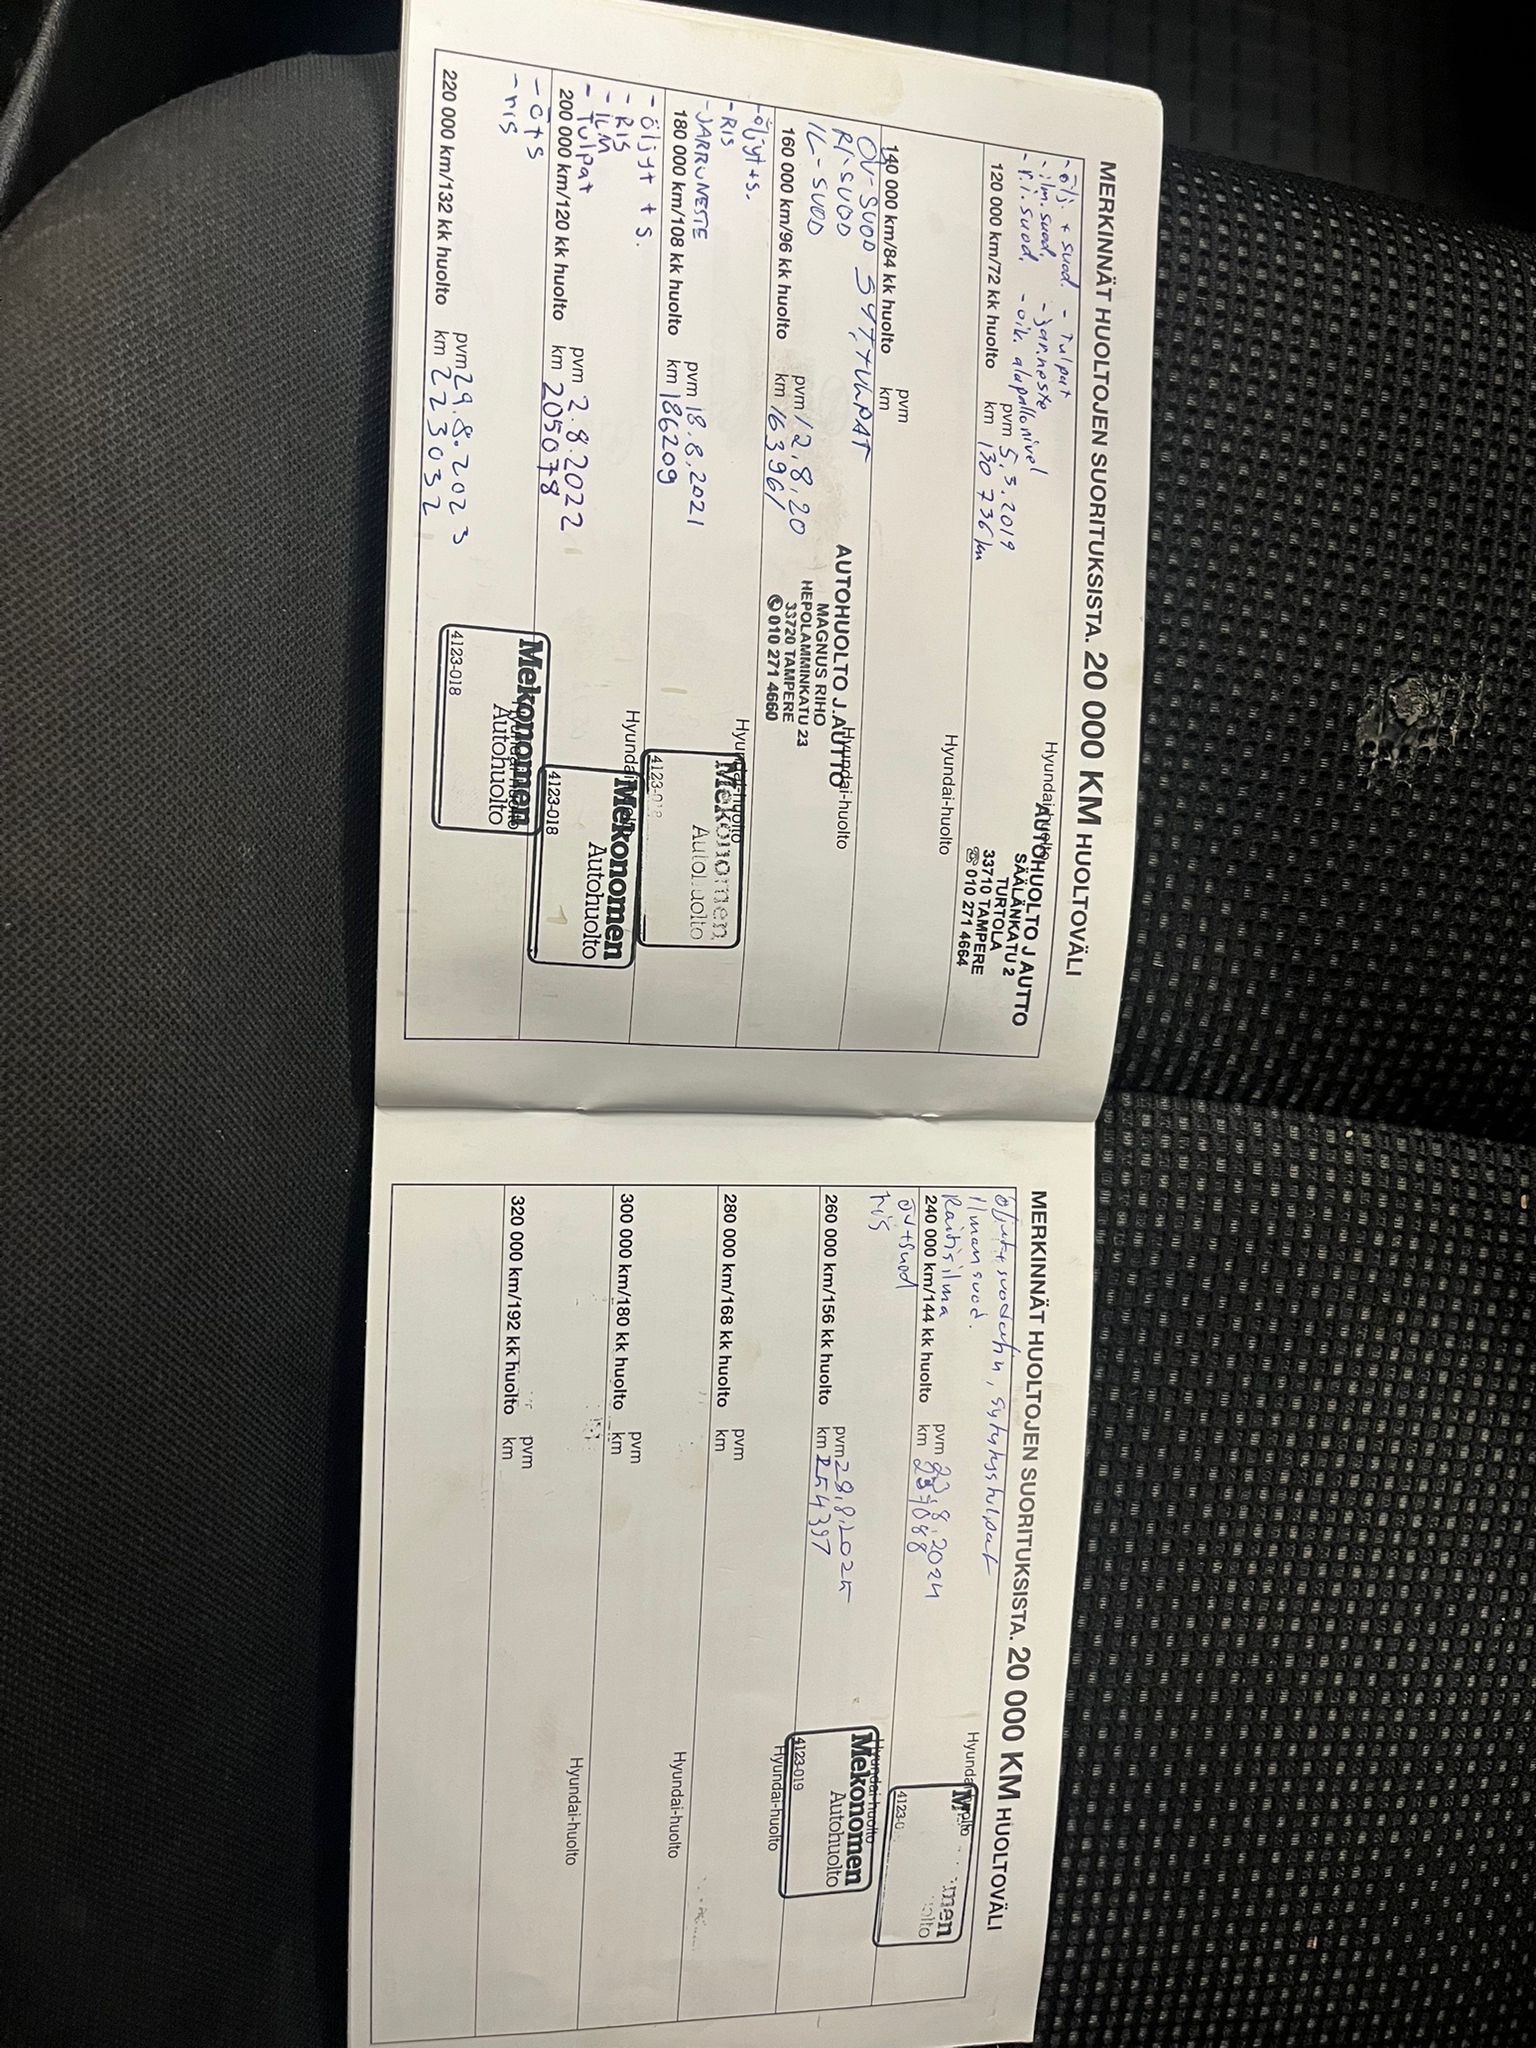 MERKINNÄT HUOLTOJEN SUORITUKSISTA. 20 000 KM HUOLTOVÄLI
- ölj. + suod. - Tulpat
- ilm. suod. - jar.neste
- r.i. suod. - oik. alapallonivel
120 000 km/72 kk huolto
pvm 5.3.2019
km 130 736 km
Hyundai-huolto
AUTOHUOLTO J AUTTO
SÄÄLÄNKATU 2
TURTOLA
33710 TAMPERE
☏ 010 271 4664
140 000 km/84 kk huolto
pvm
km
Hyundai-huolto
ÖV-SUOD SYT.TULPAT
RI-SUOD
IL-SUOD
160 000 km/96 kk huolto
pvm 12.8.20
km 163961
Hyundai-huolto
AUTOHUOLTO J.AUTTO
MAGNUS RIHO
HEPOLAMMINKATU 23
33720 TAMPERE
✆ 010 271 4660
- öljyt+s.
- RIS
- JARRUNESTE
180 000 km/108 kk huolto
pvm 18.8.2021
km 186209
Hyundai-huolto
Mekonomen
Autohuolto
4123-018
- öljyt + s.
- RIS
- ILM
- Tulpat
200 000 km/120 kk huolto
pvm 2.8.2022
km 205078
Hyundai
Mekonomen
Autohuolto
4123-018
- ö+s
- ris
220 000 km/132 kk huolto
pvm 29.8.2023
km 223032
Mekonomen
Autohuolto
4123-018
MERKINNÄT HUOLTOJEN SUORITUKSISTA. 20 000 KM HUOLTOVÄLI
öljyt+suodatin, sytytystulpat
Ilmansuod.
Raitisilma
240 000 km/144 kk huolto
pvm 8.2024
km
Hyundai-huolto
öv+suod
ris
260 000 km/156 kk huolto
pvm 28.8.2025
km 254397
Hyundai-huolto
Mekonomen
Autohuolto
4123-019
280 000 km/168 kk huolto
pvm
km
Hyundai-huolto
300 000 km/180 kk huolto
pvm
km
Hyundai-huolto
320 000 km/192 kk huolto
pvm
km
Hyundai-huolto